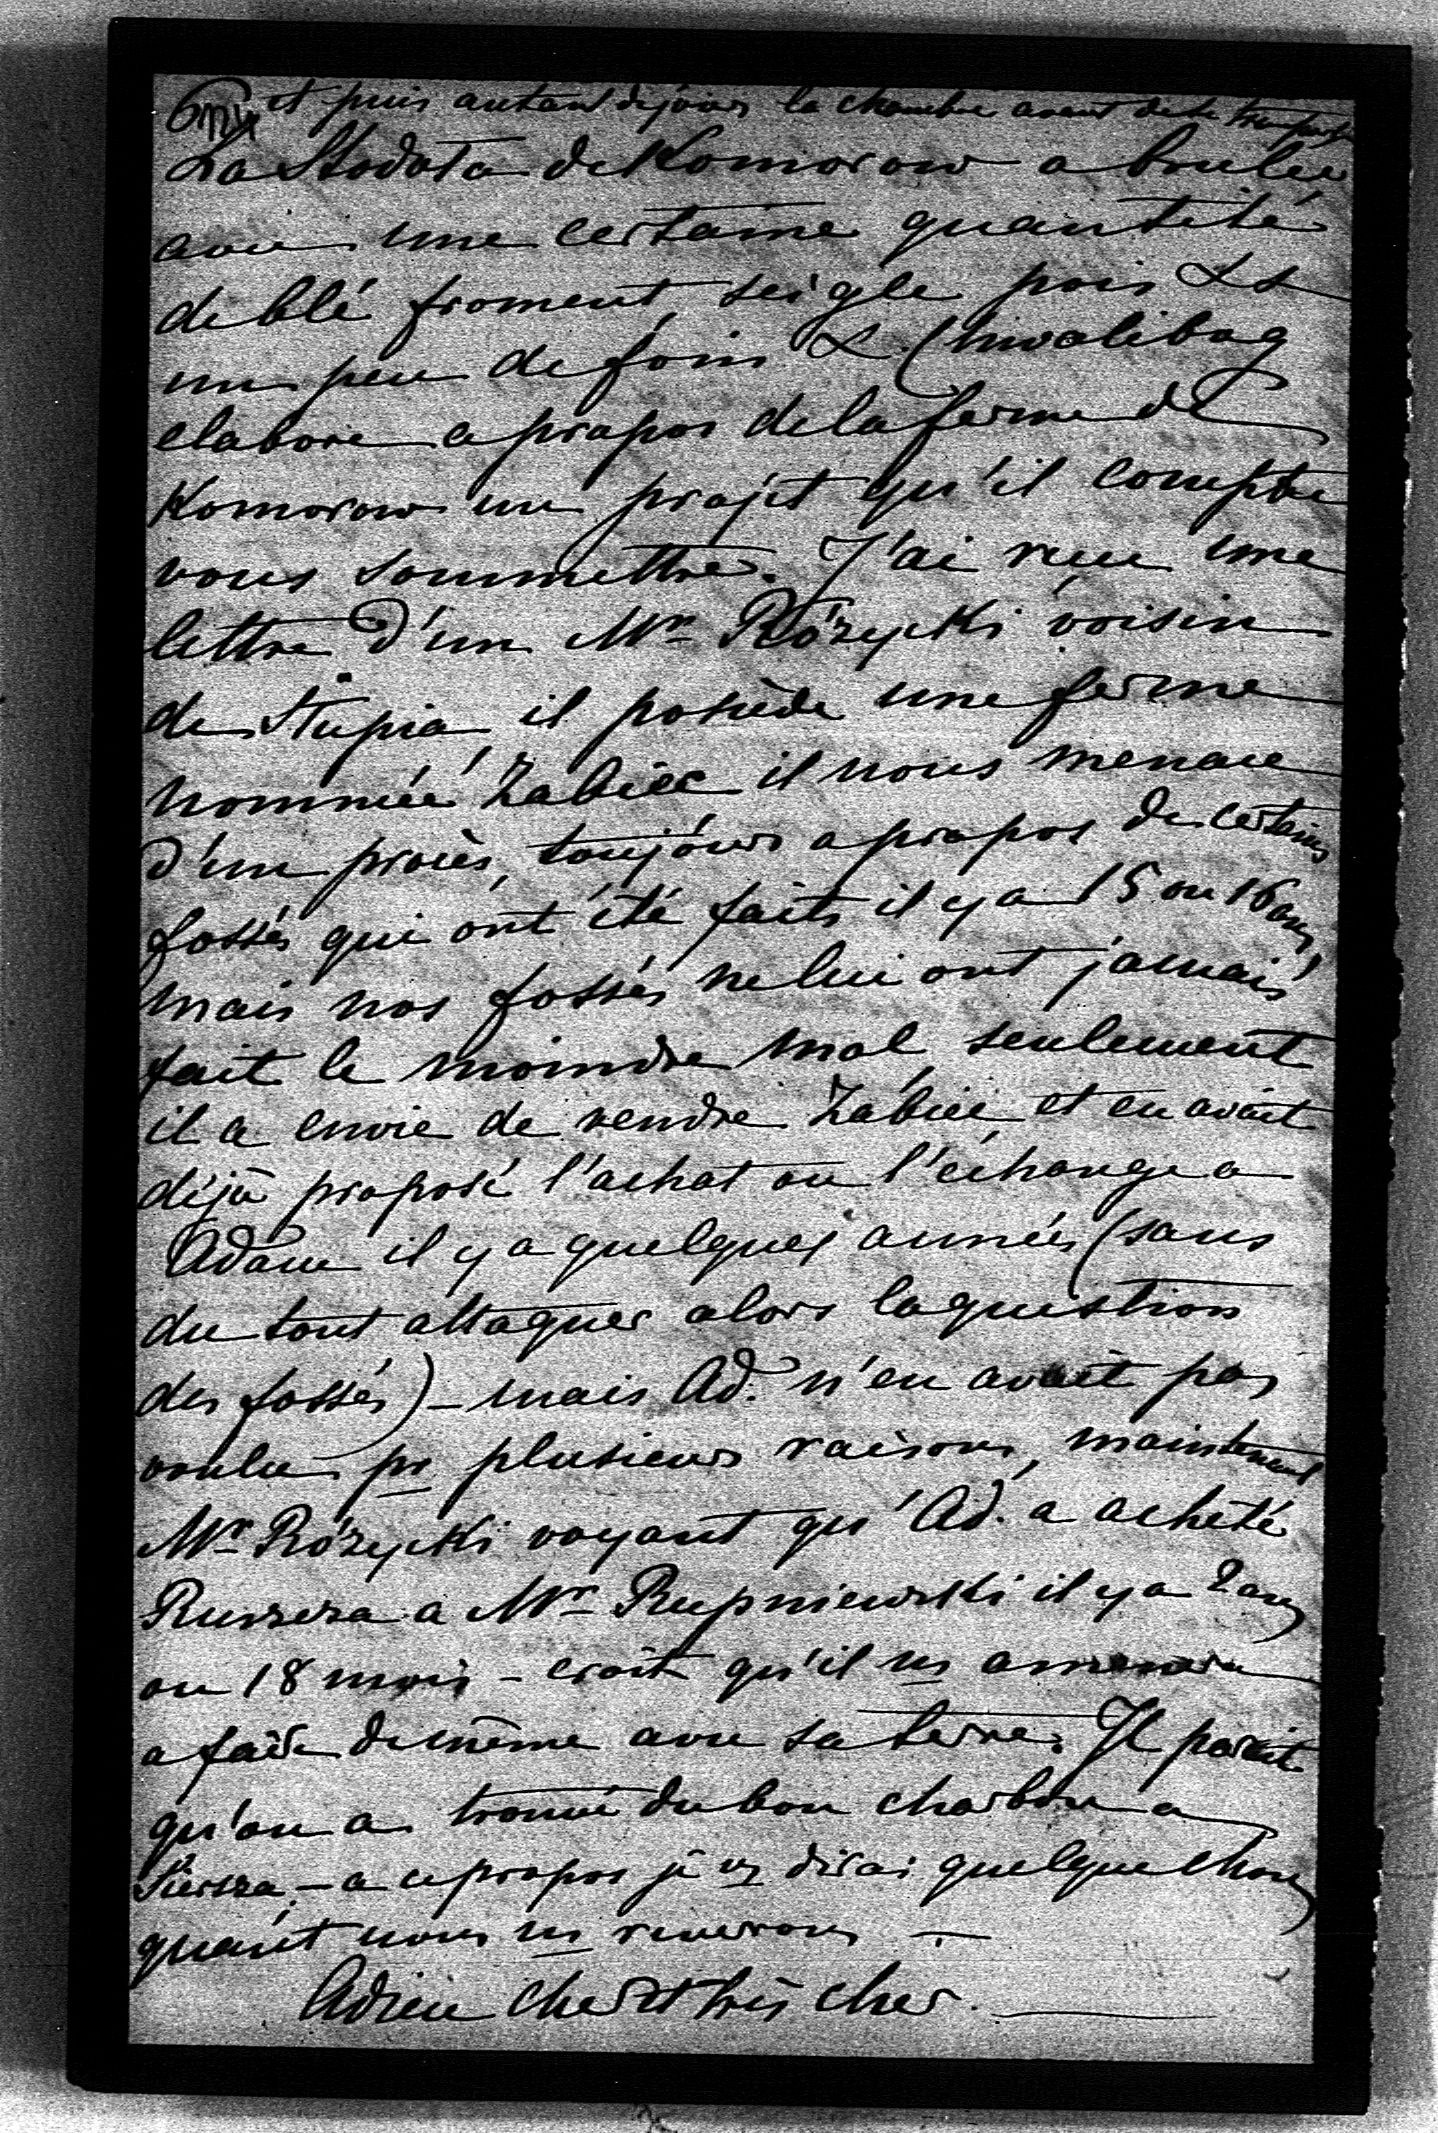 et puis autant dejours la chambre avant de le transporter
La Stodoła de Komorow a brulée
avec une certaine quantité
de blé froment seigle pois &&
un peu de foin & Chwalibog
elabore a propos de la ferme de
Komorow un projet qu'il compte
vous soumettre. J'ai reçu une
lettre d'un Mr Rózycki voisin
de Stupia il possède une ferme
nommée Zabiec il nous menace
d'un procès, toujours a propos de certains
fossés qui ont été faits il y a 15 ou 16 ans,
mais nos fossés ne lui ont jamais
fait le moindre mal, seulement
il a envie de vendre Zabiec et en avait
déjà proposé l'achat ou l'échange a
Adam il y a quelques années (sans
du tout attaquer alors la question
des fossés) – mais Ad. n'en avait pas
voulu pr plusieurs raisons, maintenant
Mr Rózycki voyant qu'Ad. a acheté
Ruszcza a Mr Rupniewski il y a 2 ans
ou 18 mois – croit qu'il ns amenera
a faire de même avec sa terre. Il parait
qu'on a trouvé du bon charbon a
Siersza – a ce propos je vs dirai quelque chose
quant nous ns reverrons –
Adieu cher et très cher.